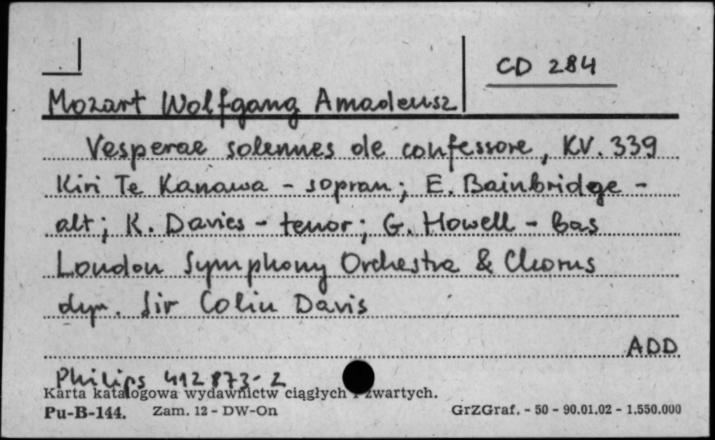 CD 284
Mozart Wolfgang Amadeusz
Vesperae solennes de confessore, KV. 339
Kiri Te Kanawa - sopran; E. Bainbridge -
alt; K. Davies - tenor; G. Howell - bas
London Symphony Orchestra & Chorus
dyr. Sir Colin Davis
ADD
Philips 412 873-2
Karta katalogowa wydawnictw ciągłych i zwartych.
Pu-B-144. Zam. 12 - DW-On GrZGraf. - 50 - 90.01.02 - 1.550.000